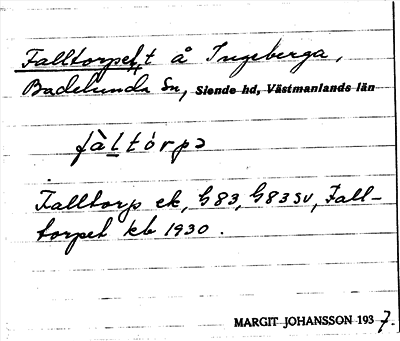 Falltorpet, t å Ingeberga,
Badelunda sn, Siende hd, Västmanlands län
fàltórpə
Falltorp ek, G83, G83SV, Fall-
torpet kb 1930.
MARGIT JOHANSSON 1937.